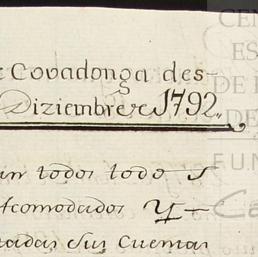 Covadonga des-
Diziembre de 1792,,
todos todo s
Acomodados y
sus Cuentas
CEN
ES
DE
DE
FUN
Ca